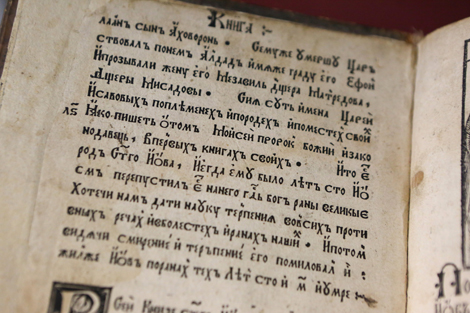 Книга :~
лаан сын Аховоронь · Семуже умершу Царь
ствовал понем Алдад имяже граду его Ефой
Ипрозывали жену его Мезавиль дщера Матредова,
Дщеры Мисадовы · Сия суть имена Царей
Исавовых поплеменех ипородех ипоместех свой
Iако пишеть ѿтом Моисей пророк божий изако
нодавець, Впервых книгах своих · Ито е҃
род ст҃го Иова, Иегда ему было лѣт сто ио҃
смъ перепустил е҃ нанего гд҃ь богъ раны великие
Хотечи нам дати науку терпения вовсих проти
вных речах иволестех иранах наши · Ипотом
видячи смирение и терьпение его помиловал и :
жилже Иовъ поранах тех лѣт сто и м҃ иумре :~